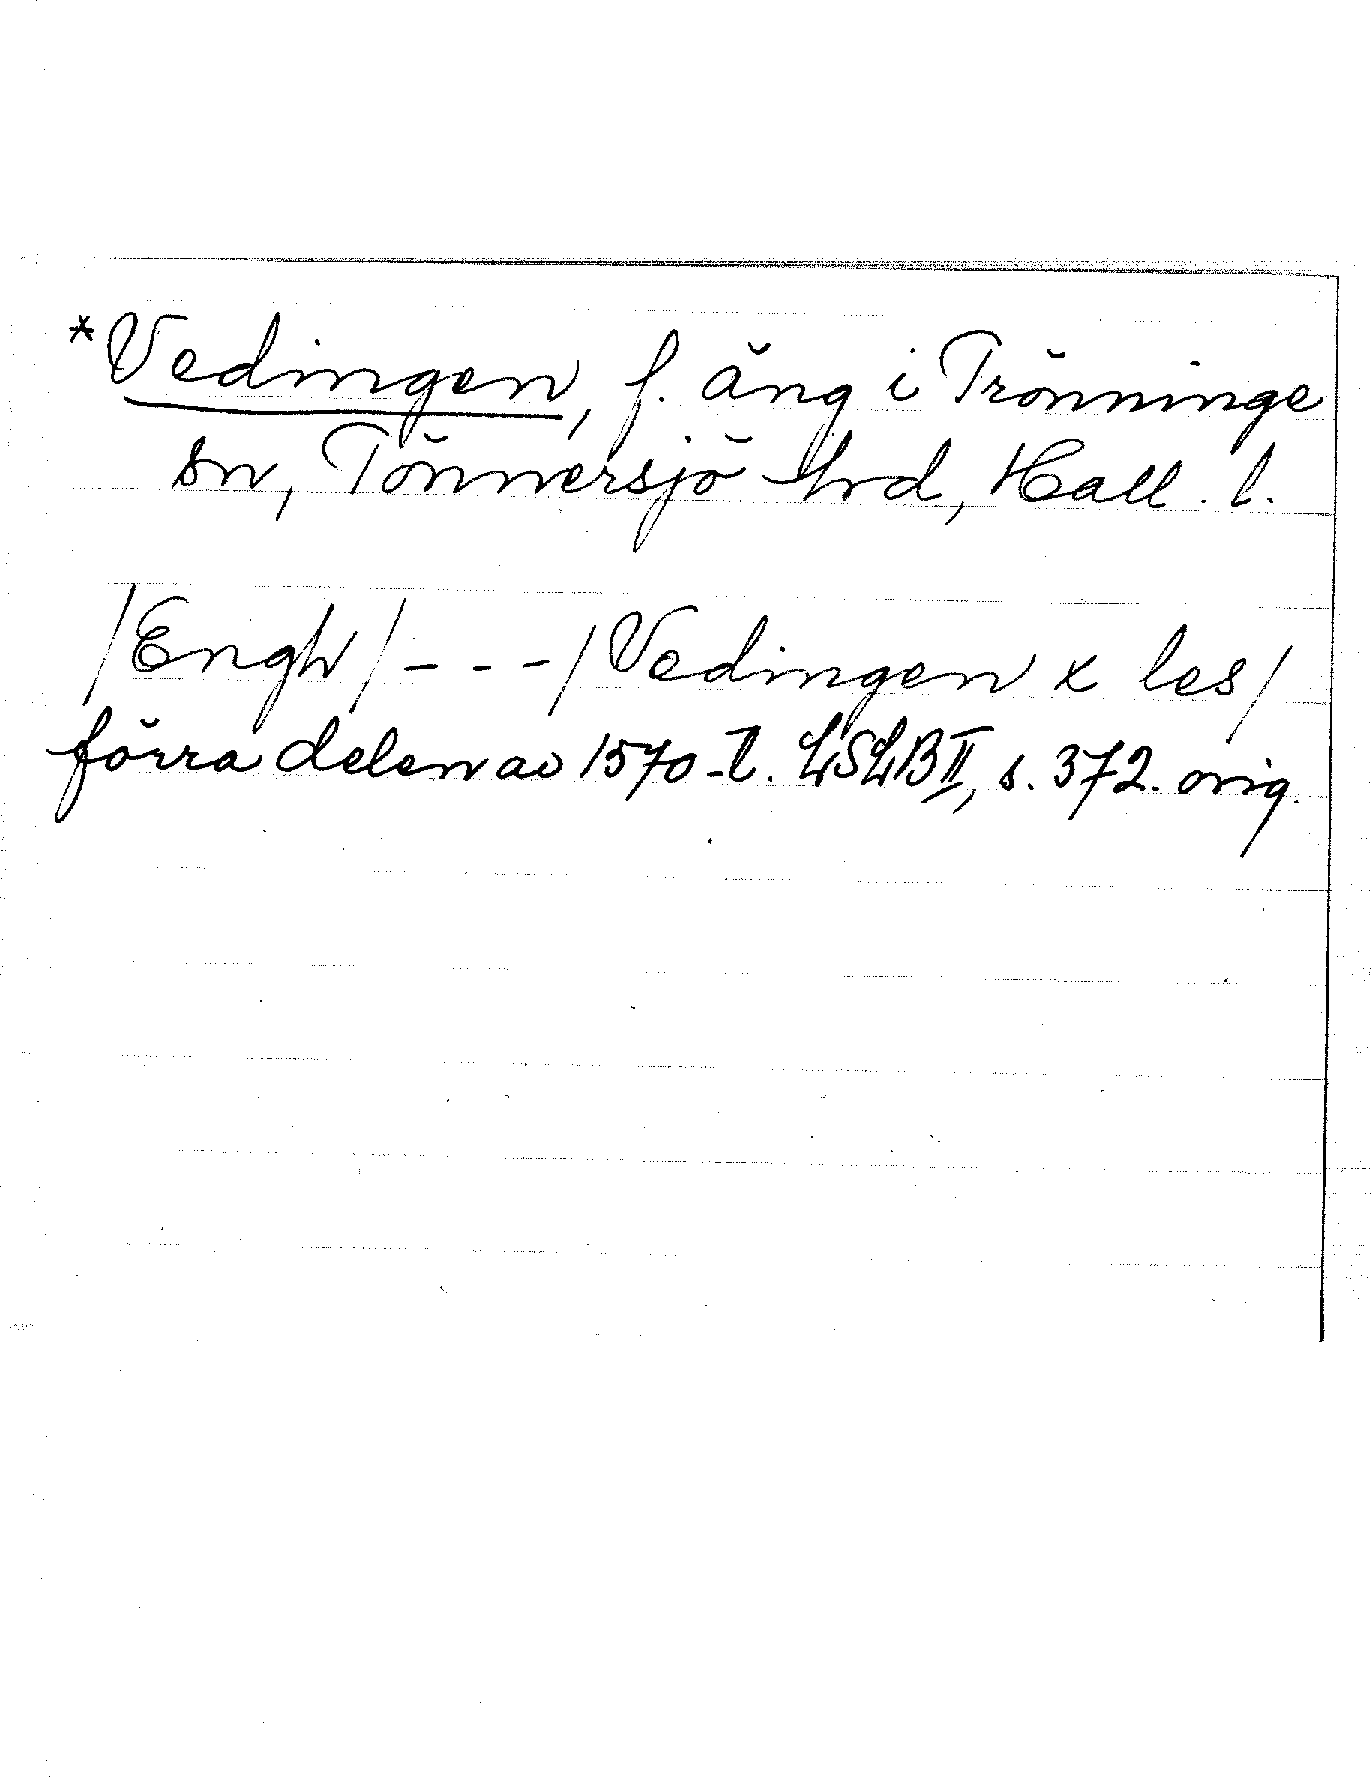 *Vedingen, f. äng i Trönninge
sn, Tönnersjö hrd, Hall. l.
/Engh/ - - - /Vedingen x les/
förra delen av 1570-t. LSLB II, s. 372. orig.